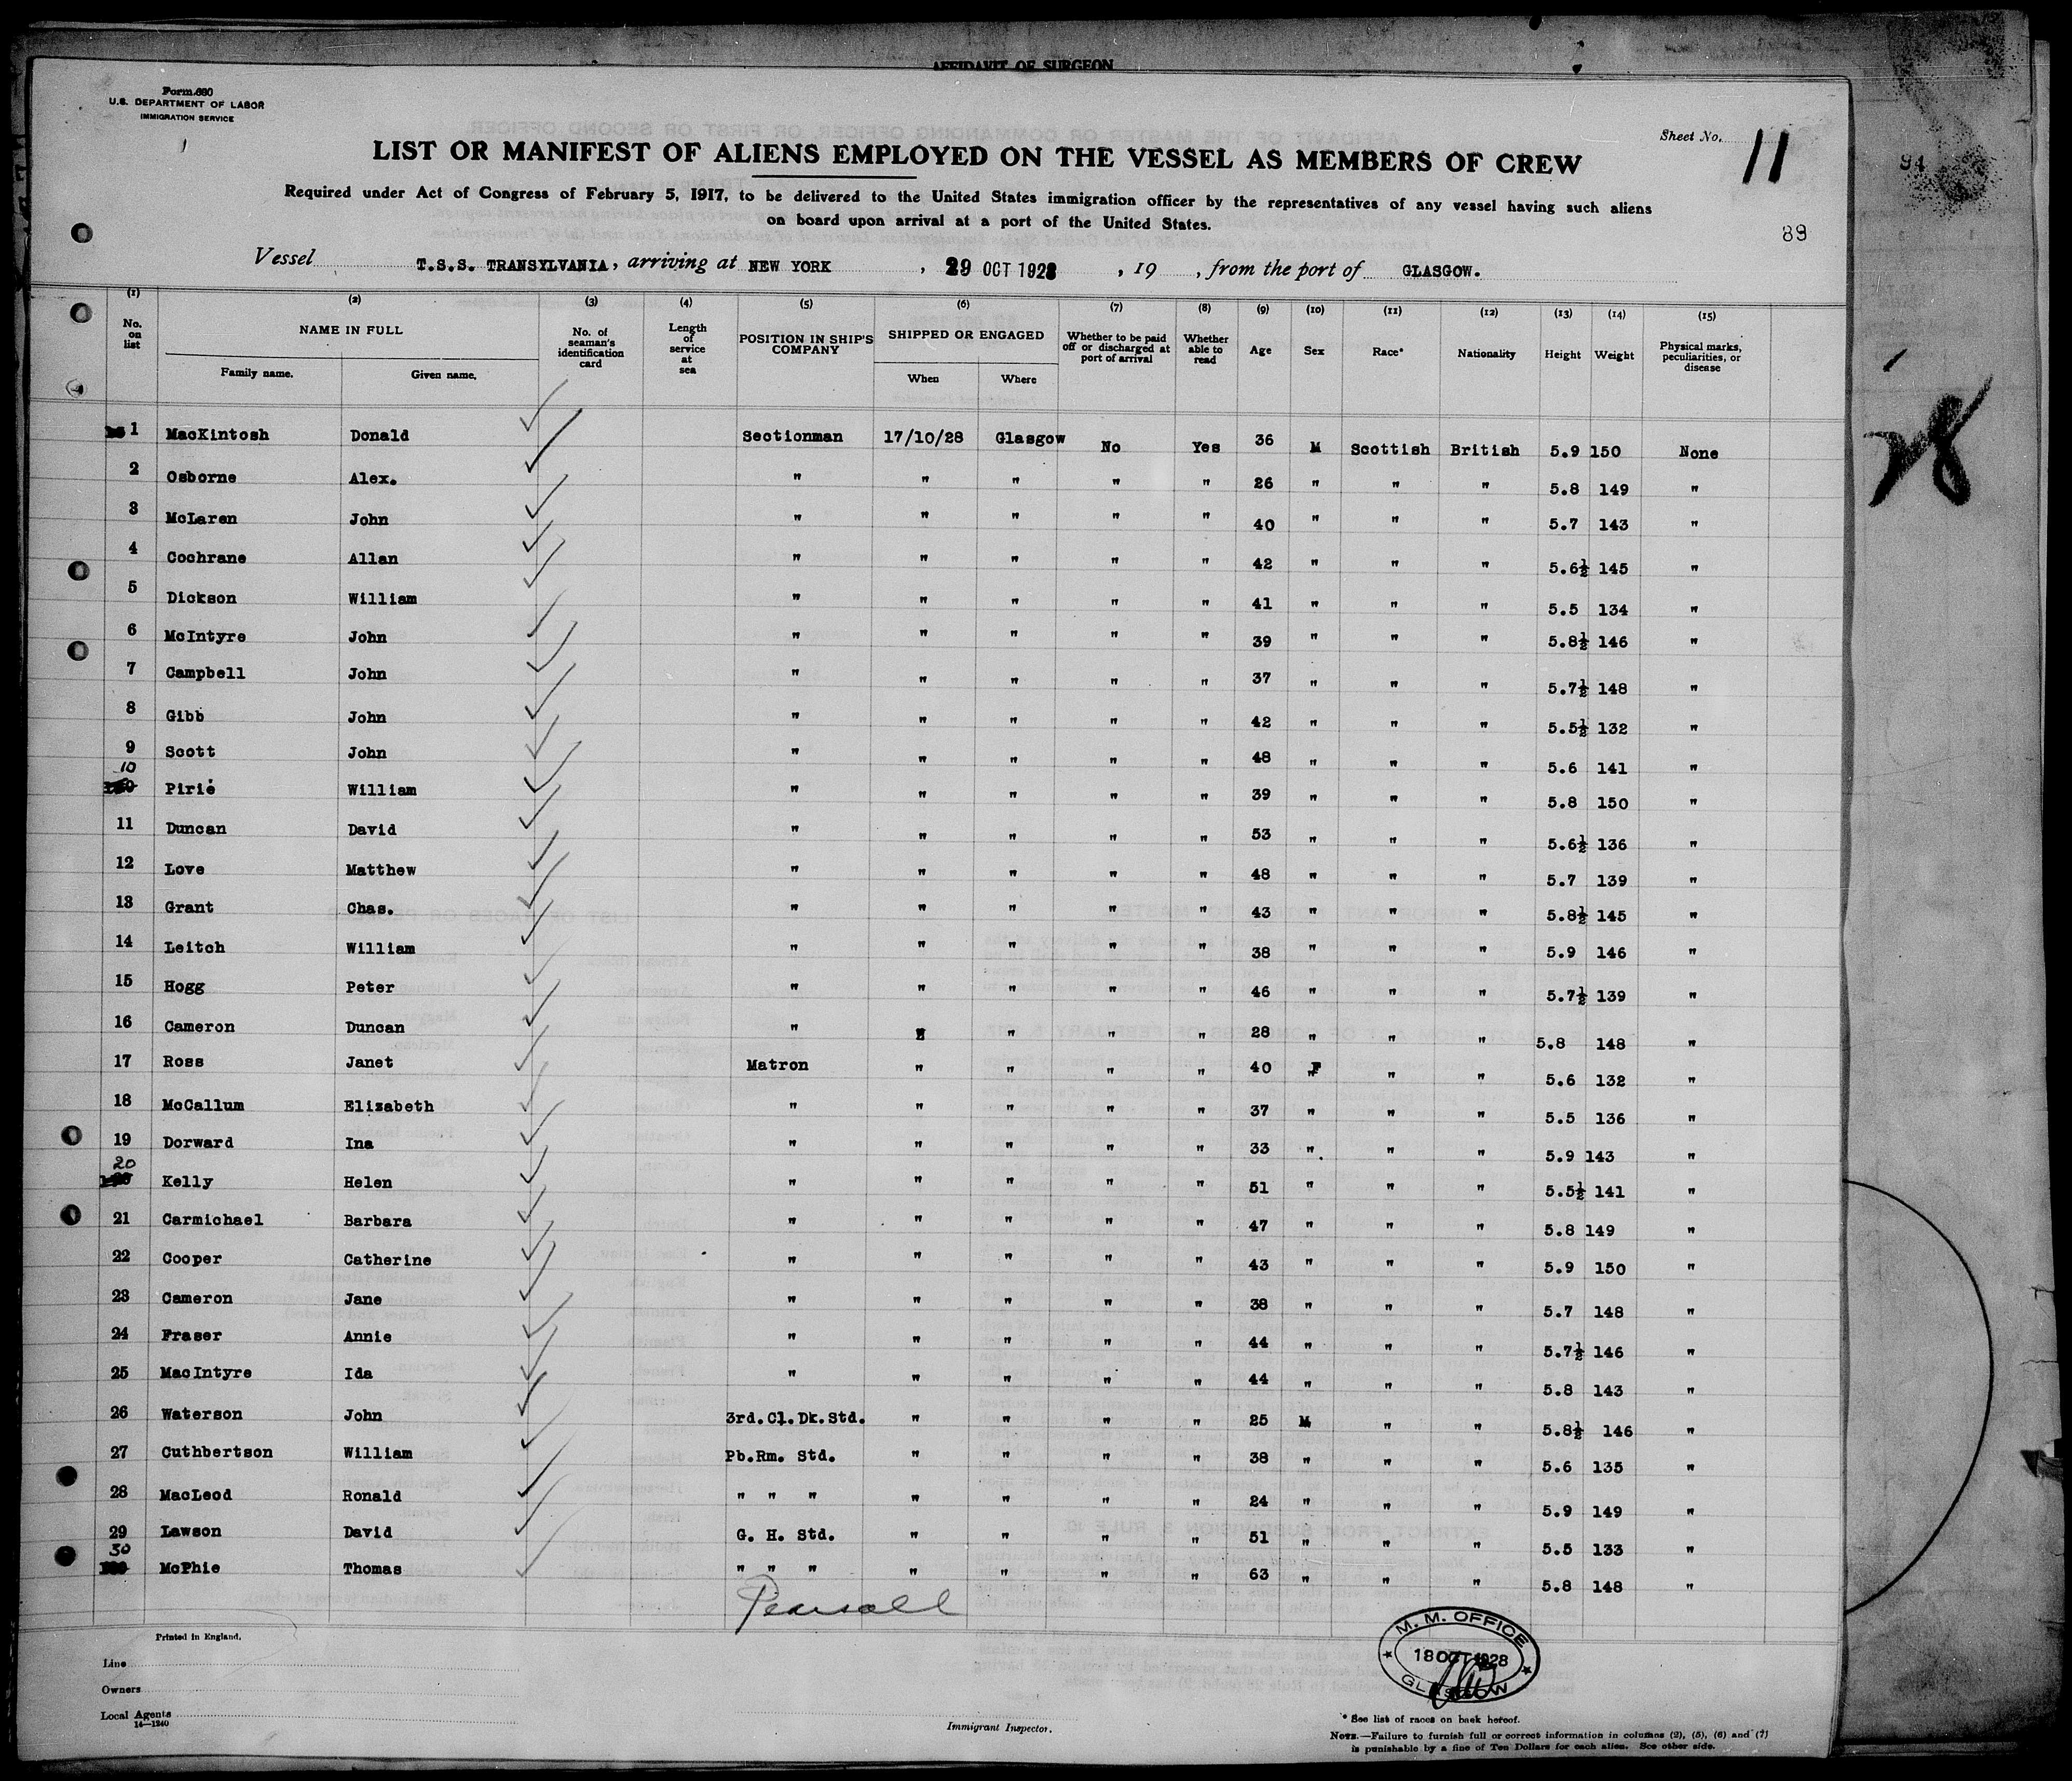 AFFIDAVIT OF SURGEON
Form 680
U.S. DEPARTMENT OF LABOR
IMMIGRATION SERVICE
Sheet No. 11
94
LIST OR MANIFEST OF ALIENS EMPLOYED ON THE VESSEL AS MEMBERS OF CREW
Required under Act of Congress of February 5, 1917, to be delivered to the United States immigration officer by the representatives of any vessel having such aliens
on board upon arrival at a port of the United States.
89
Vessel T.S.S. TRANSYLVANIA, arriving at NEW YORK, 29 OCT 1928, 19 , from the port of GLASGOW.
(1) (2) (3) (4) (5) (6) (7) (8) (9) (10) (11) (12) (13) (14) (15)
No. on list NAME IN FULL Family name. Given name. No. of seaman's identification card Length of service at sea POSITION IN SHIP'S COMPANY SHIPPED OR ENGAGED When Where Whether to be paid off or discharged at port of arrival Whether able to read Age Sex Race* Nationality Height Weight Physical marks, peculiarities, or disease
1 MacKintosh Donald Sectionman 17/10/28 Glasgow No Yes 36 M Scottish British 5.9 150 None
2 Osborne Alex. " " " " " 26 " " " 5.8 149 "
3 McLaren John " " " " " 40 " " " 5.7 143 "
4 Cochrane Allan " " " " " 42 " " " 5.6½ 145 "
5 Dickson William " " " " " 41 " " " 5.5 134 "
6 McIntyre John " " " " " 39 " " " 5.8½ 146 "
7 Campbell John " " " " " 37 " " " 5.7½ 148 "
8 Gibb John " " " " " 42 " " " 5.5½ 132 "
9 Scott John " " " " " 48 " " " 5.6 141 "
10 Pirie William " " " " " 39 " " " 5.8 150 "
11 Duncan David " " " " " 53 " " " 5.6½ 136 "
12 Love Matthew " " " " " 48 " " " 5.7 139 "
13 Grant Chas. " " " " " 43 " " " 5.8½ 145 "
14 Leitch William " " " " " 38 " " " 5.9 146 "
15 Hogg Peter " " " " " 46 " " " 5.7½ 139 "
16 Cameron Duncan " " " " " 28 " " " 5.8 148 "
17 Ross Janet Matron " " " " 40 F " " 5.6 132 "
18 McCallum Elizabeth " " " " " 37 " " " 5.5 136 "
19 Dorward Ina " " " " " 33 " " " 5.9 143 "
20 Kelly Helen " " " " " 51 " " " 5.5½ 141 "
21 Carmichael Barbara " " " " " 47 " " " 5.8 149 "
22 Cooper Catherine " " " " " 43 " " " 5.9 150 "
23 Cameron Jane " " " " " 38 " " " 5.7 148 "
24 Fraser Annie " " " " " 44 " " " 5.7½ 146 "
25 MacIntyre Ida " " " " " 44 " " " 5.8 143 "
26 Waterson John 3rd.Cl.Dk.Std. " " " " 25 M " " 5.8½ 146 "
27 Cuthbertson William Pb.Rm. Std. " " " " 38 " " " 5.6 135 "
28 MacLeod Ronald " " " " " " " 24 " " " 5.9 149 "
29 Lawson David G. H. Std. " " " " 51 " " " 5.5 133 "
30 McPhie Thomas " " " " " " " 63 " " " 5.8 148 "
Pearsall
M. M. OFFICE
18 OCT 1928
GLASGOW
Printed in England.
Line
Owners
Local Agents
14—1240
Immigrant Inspector.
* See list of races on back hereof.
NOTE.—Failure to furnish full or correct information in columns (2), (5), (6) and (7)
is punishable by a fine of Ten Dollars for each alien. See other side.